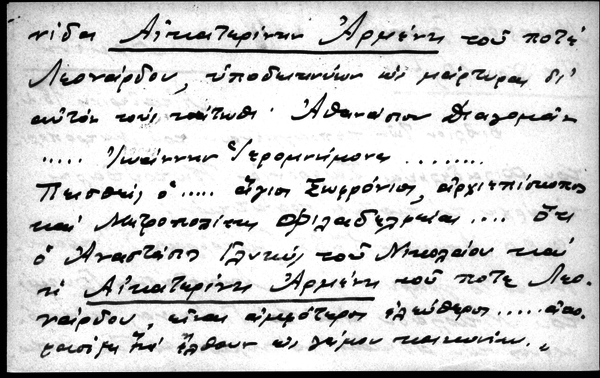 νίδα Αἰκατερίνην Ἀρμένη τοῦ ποτέ
Λεονάρδου, ὑποδεικνύων ὡς μάρτυρας δι'
αὐτόν τούς κάτωθι· Ἀθανάσιον
..... Ἰωάννην Ἱερομνήμονα ........
Πεισθείς ὁ ..... ἅγιος Σωφρόνιος, ἀρχιεπίσκοπος
καί Μητροπολίτης Φιλαδελφείας .... ὅτι
ὁ Ἀναστάσιος Γλυκύς τοῦ Νικολάου καί
ἡ Αἰκατερίνη Ἀρμένη τοῦ ποτε Λεο-
νάρδου, εἶναι ἀμφότεροι ἐλεύθεροι .....
ἔλθουν ὡς γάμου κοινωνίαν.